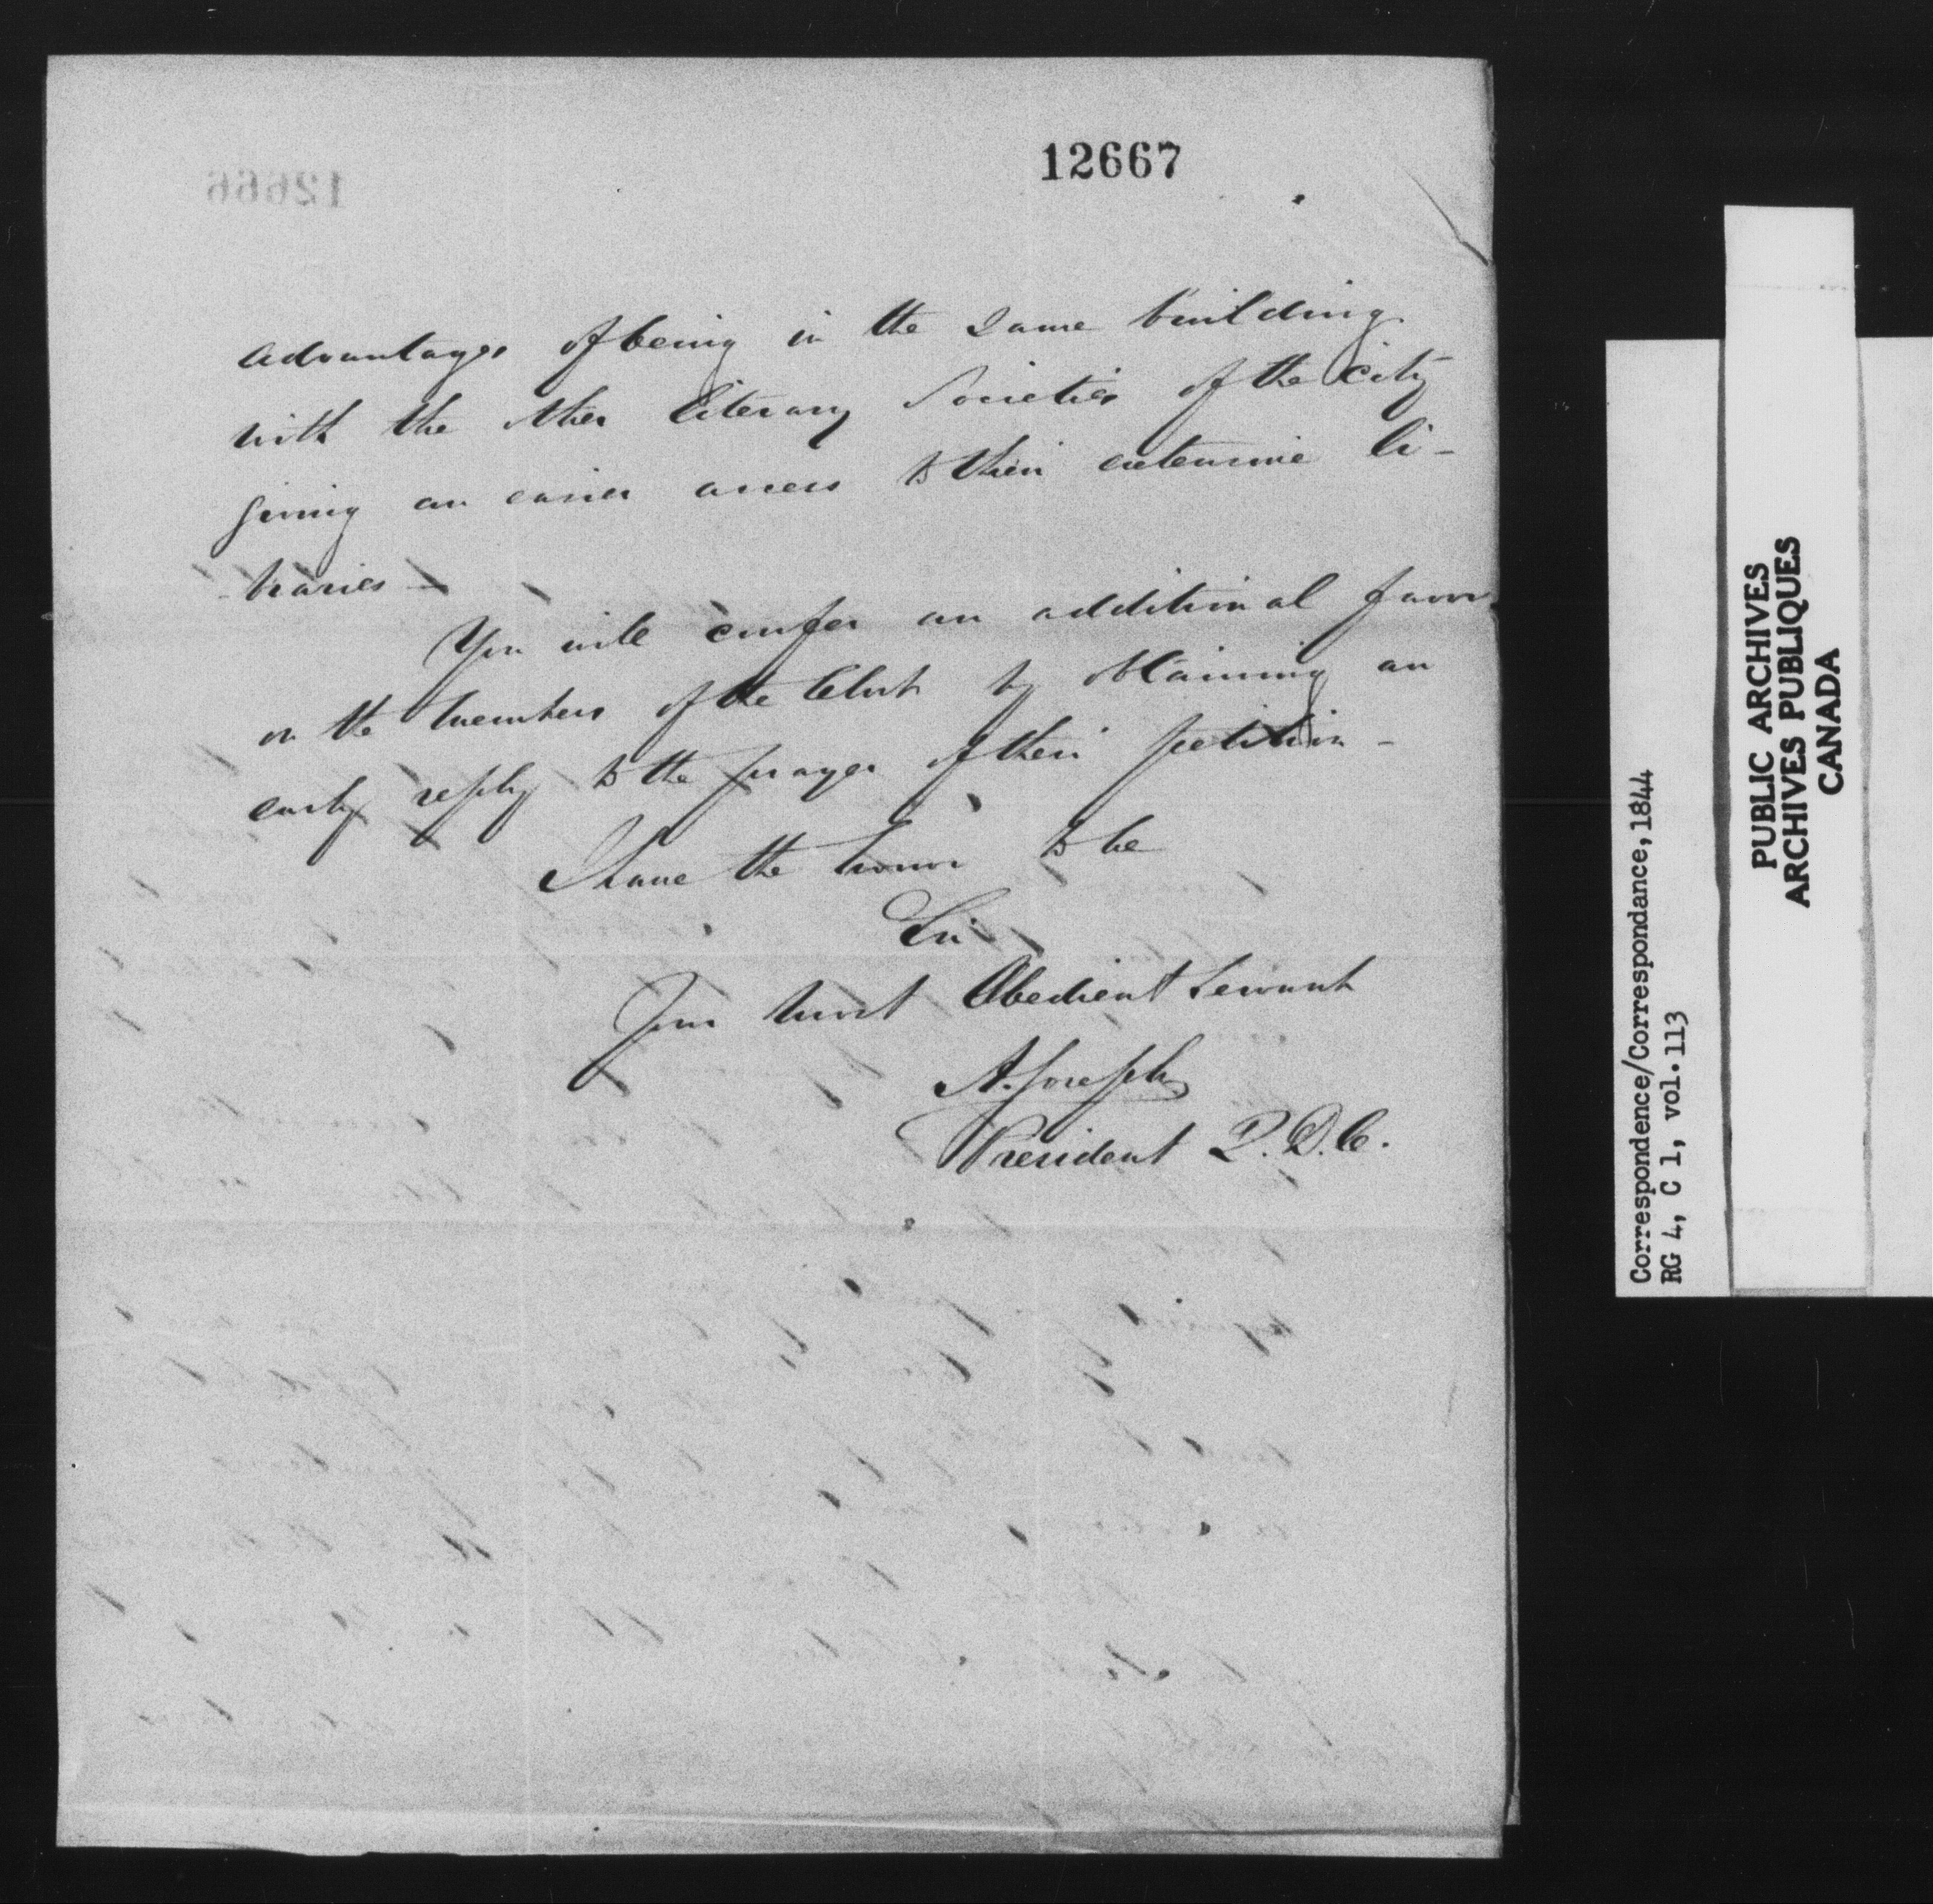 12667
12666
advantages of being in the same building
with the other literary Societies of the City
giving an easier access to their extensive li-
-braries -
You will confer an additional favor
on the members of the Club by obtaining an
early reply to the prayer of their petition -
I have the honor to be
Sir
Your most Obedient Servant
A. Joseph
President Q. D. C.
Correspondence/Correspondance, 1844
RG 4, C 1, vol. 113
PUBLIC ARCHIVES
ARCHIVES PUBLIQUES
CANADA